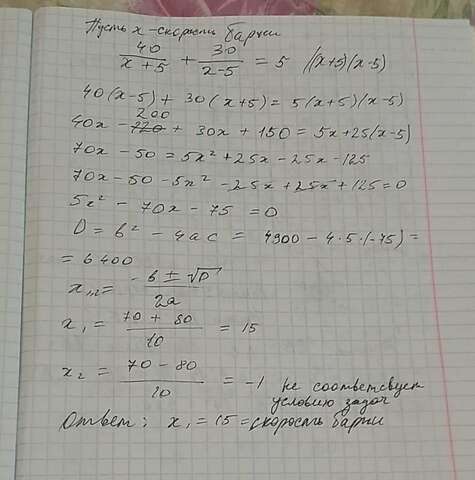 Пусть x - скорость баржи
40/(x+5) + 30/(x-5) = 5 /(x+5)(x-5)
40(x-5) + 30(x+5) = 5(x+5)(x-5)
200
40x - 220 + 30x + 150 = 5x+25(x-5)
70x - 50 = 5x² + 25x - 25x - 125
70x - 50 - 5x² - 25x + 25x + 125 = 0
5x² - 70x - 75 = 0
D = b² - 4ac = 4900 - 4·5·(-75) =
= 6400
x₁,₂ = (-b ± √D)/2a
x₁ = (70 + 80)/10 = 15
x₂ = (70 - 80)/10 = -1 не соответсвует
условию задач
Ответ: x₁ = 15 = скорость баржи